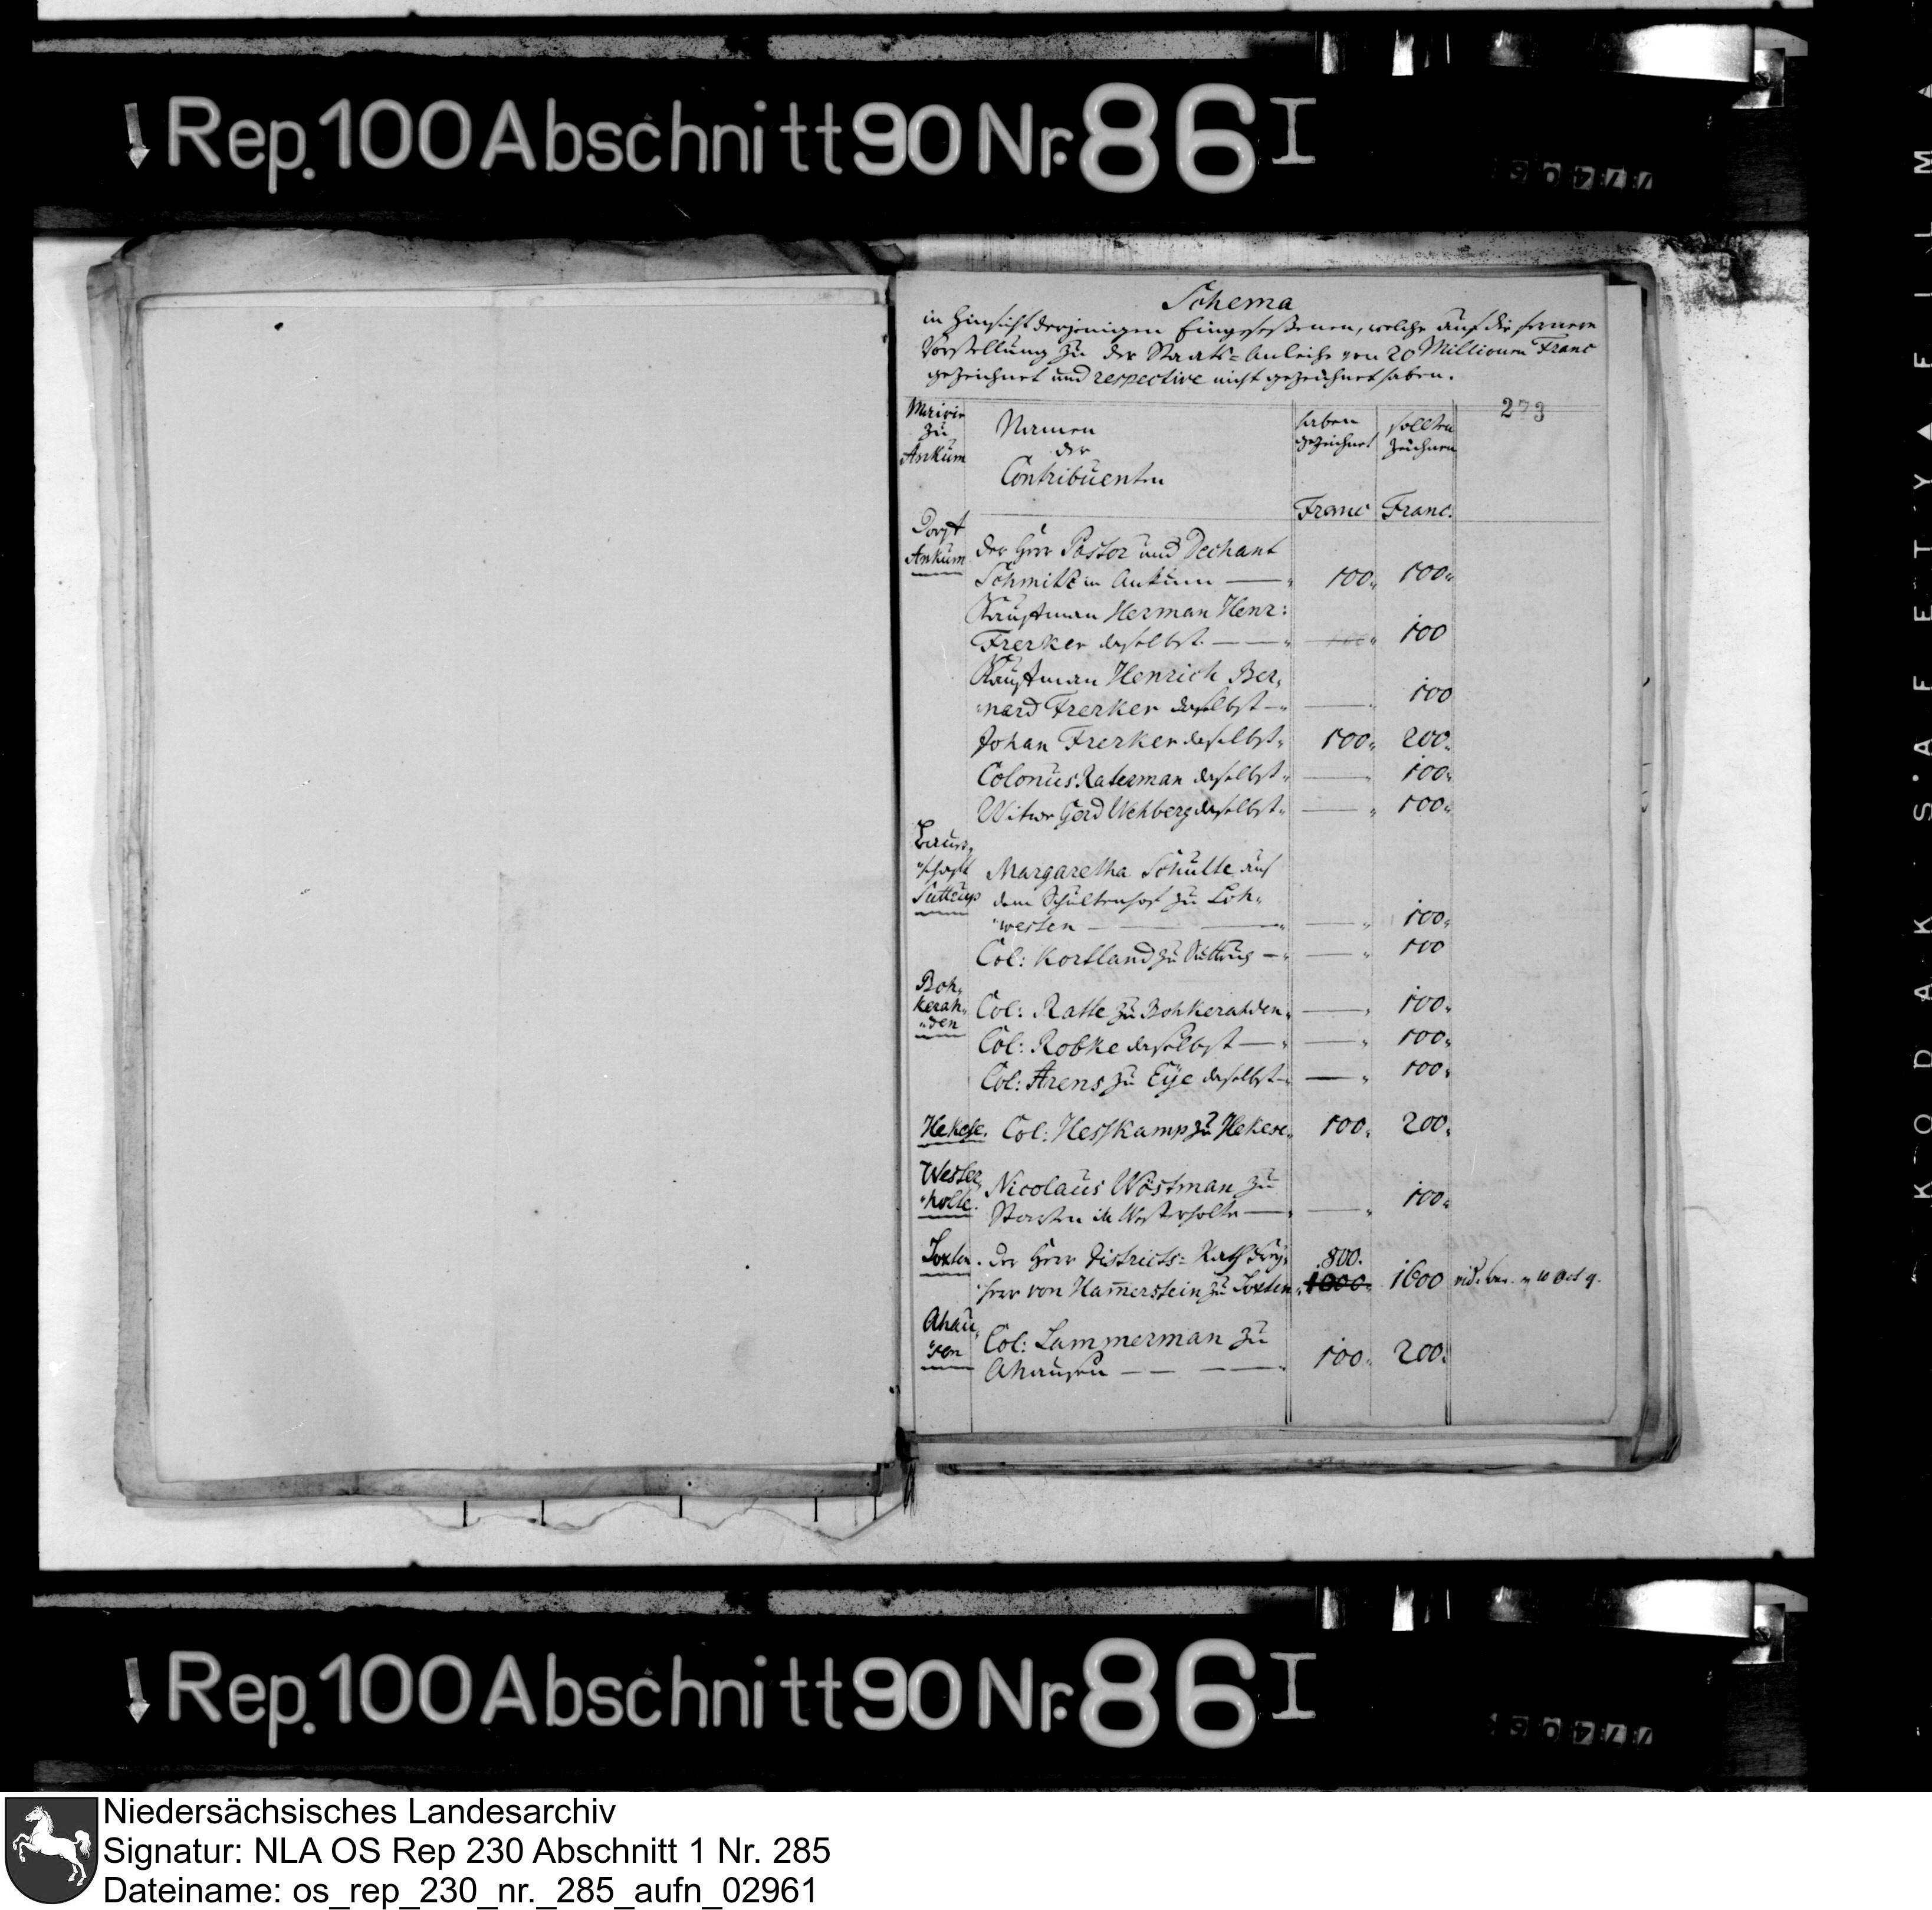 Rep. 100 Abschnitt 90 Nr. 86 I
Schema
in Hinsicht derjenigen Eingesessenen, welche auf die fernere
Vorstellung zu der Staats=Anleihe von 20 Millionen Franc
gezeichnet und respective nicht gezeichnet haben.
273
Mairie zu Ankum
Namen der Contribuenten
haben gezeichnet
sollten zeichnen
Franc Franc.
Dorf Ankum
der Herr Pastor und Dechant
Schmitz in Ankum — 100„ 100„
Kaufman Herman Henr:
Frerker daselbst — 100
Kaufman Henrich Ber„
„nard Frerker daselbst — 100
Johan Frerker daselbst„ 100„ 200„
Colonus Raterman daselbst„ — 100„
Witwe Gerd Wehberg daselbst„ — 100„
Baur„
„schaft
Suttrup
Margaretha Schulte auf
dem Schultenhof zu Loh„
„westen — 100„
Col: Kortland zu Suttrup — 100
Boh„
kerah„
„den
Col: Ratte zu Bohkerahden„ — 100„
Col: Robke daselbst — 100„
Col: Arens zu Eye daselbst — 100„
Hekese. Col: Hesskamp zu Hekese„ 100„ 200„
Wester„
„holte.
Nicolaus Wöstman zu
in Westerholte — 100„
Loxten. der Herr Districts=Rath Frey„ 800.
„herr von Hamerstein zu Loxten„ 1000„ 1600
Ahau„
„sen
Col: Lammerman zu
Ahausen — 100„ 200„
KODAK SAFETY FILM
Rep. 100 Abschnitt 90 Nr. 86 I
Niedersächsisches Landesarchiv
Signatur: NLA OS Rep 230 Abschnitt 1 Nr. 285
Dateiname: os_rep_230_nr._285_aufn_02961